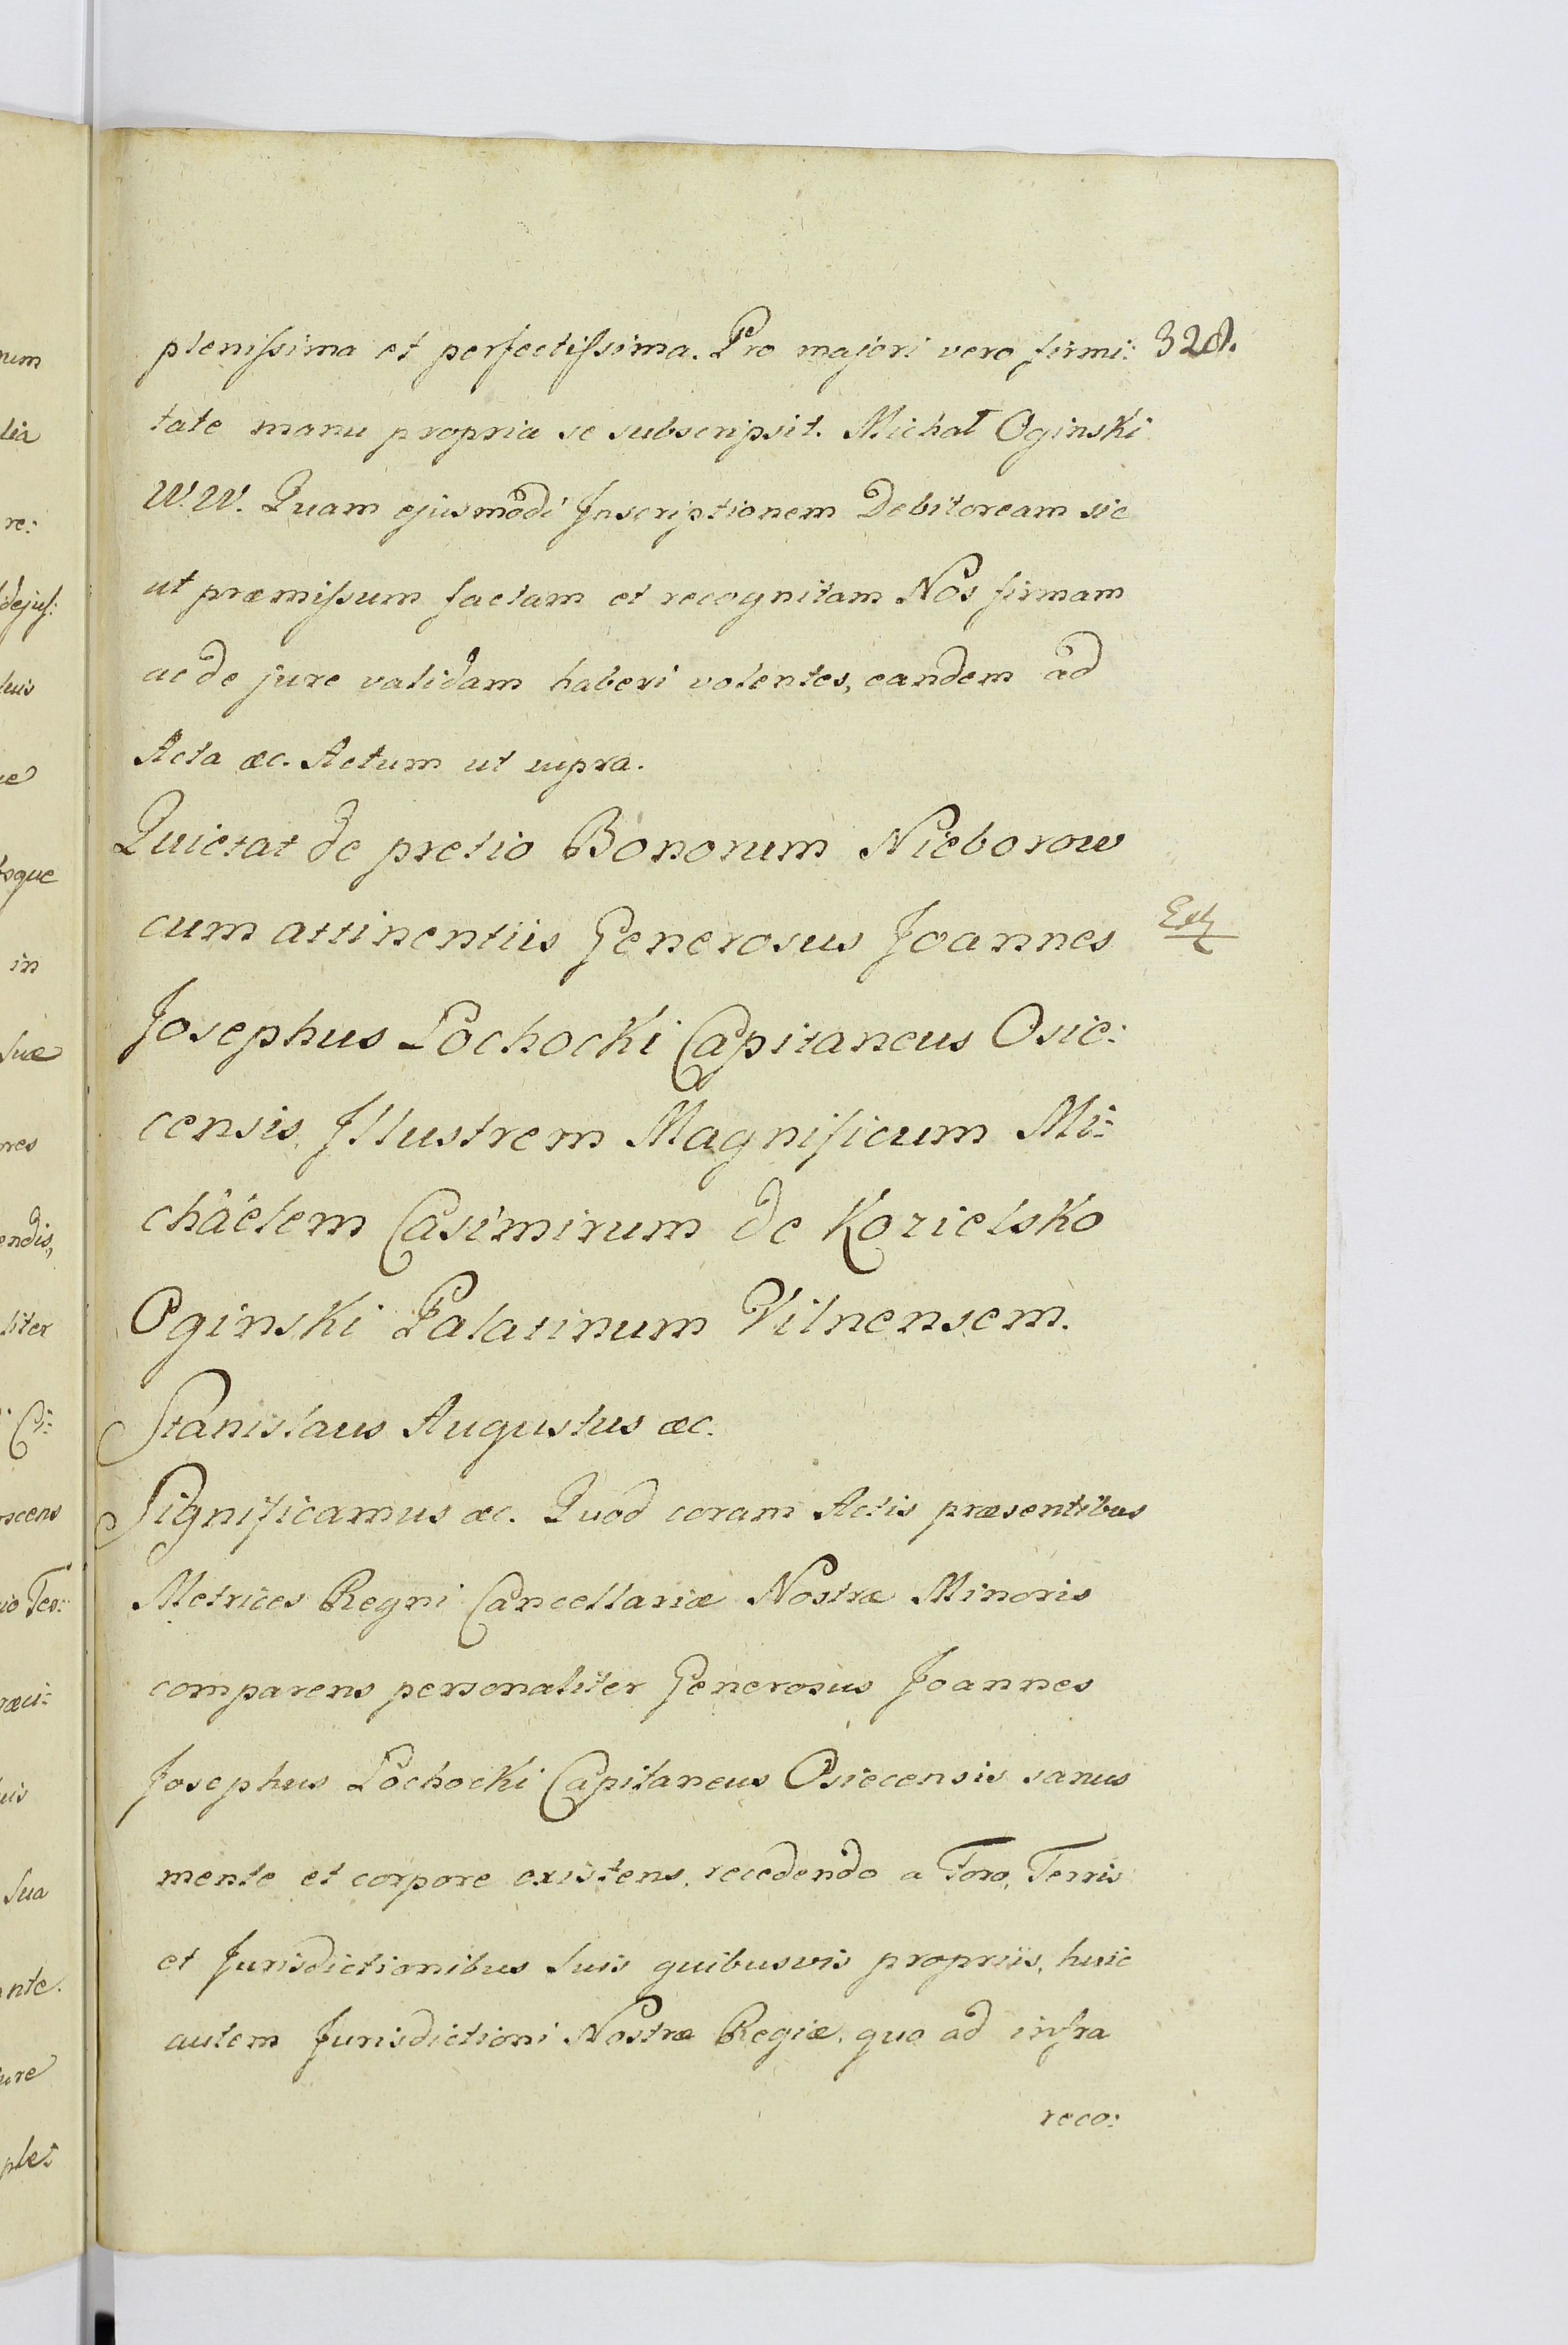 plenissima et perfectissima. Pro majori vero firmi: 328.
tate manu propria se subscripsit. Michał Oginski
W. W. Quam ejusmodi Inscriptionem Debitoream sic
ut præmissum factam et recognitam Nos firmam
ac de jure validam haberi volentes, eandem ad
Acta æc. Actum ut supra.
Quietat de pretio Bonorum Nieborow
cum attinentiis Generosus Joannes
Josephus Łochocki Capitaneus Osie:
censis, Illustrem Magnificum Mi:
chäelem Casimirum de Kozielsko
Oginski Palatinum Vilnensem.
Stanislaus Augustus æc.
Significamus æc. Quod coram Actis præsentibus
Metrices Regni Cancellariæ Nostræ Minoris
comparens personaliter Generosus Joannes
Josephus Łochocki Capitaneus Osiecensis sanus
mente et corpore existens, recedendo a Foro, Terris
et Jurisdictionibus suis quibusvis propriis, huic
autem Jurisdictioni Nostræ Regiæ, quo ad infra
reco:
num
lia
re:
dejus:
in
suæ
endis,
liter
Ci:
scens
sua
ple: